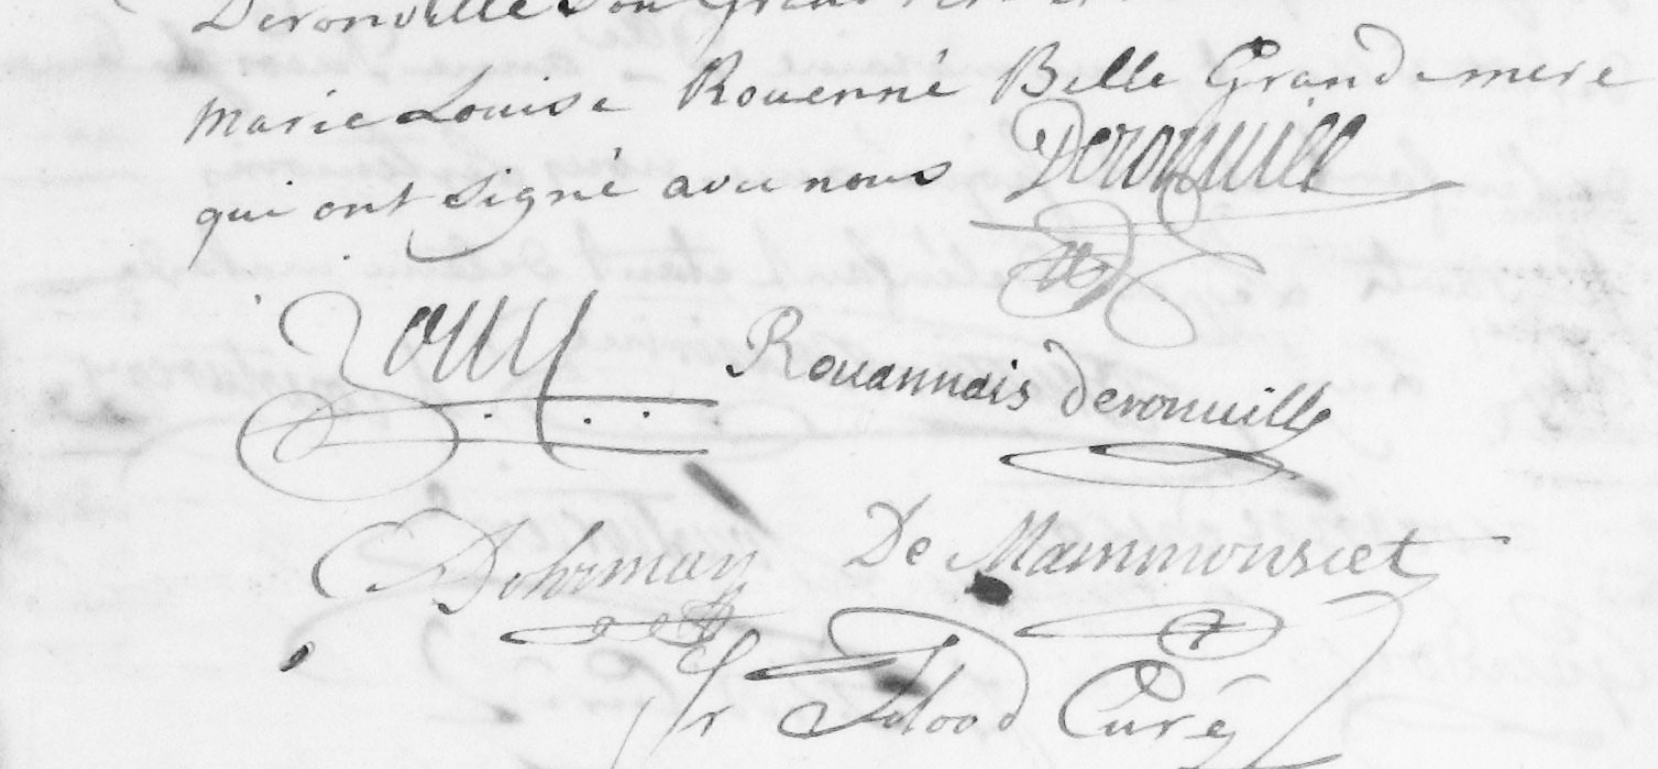 Deronville Son Grand Pere et
Marie Louise Rouenné Belle Grande mere
qui ont signé avec nous Deronville
Rouannais Deronville
Dohrman De Mammonsiet
fr Flood Curé